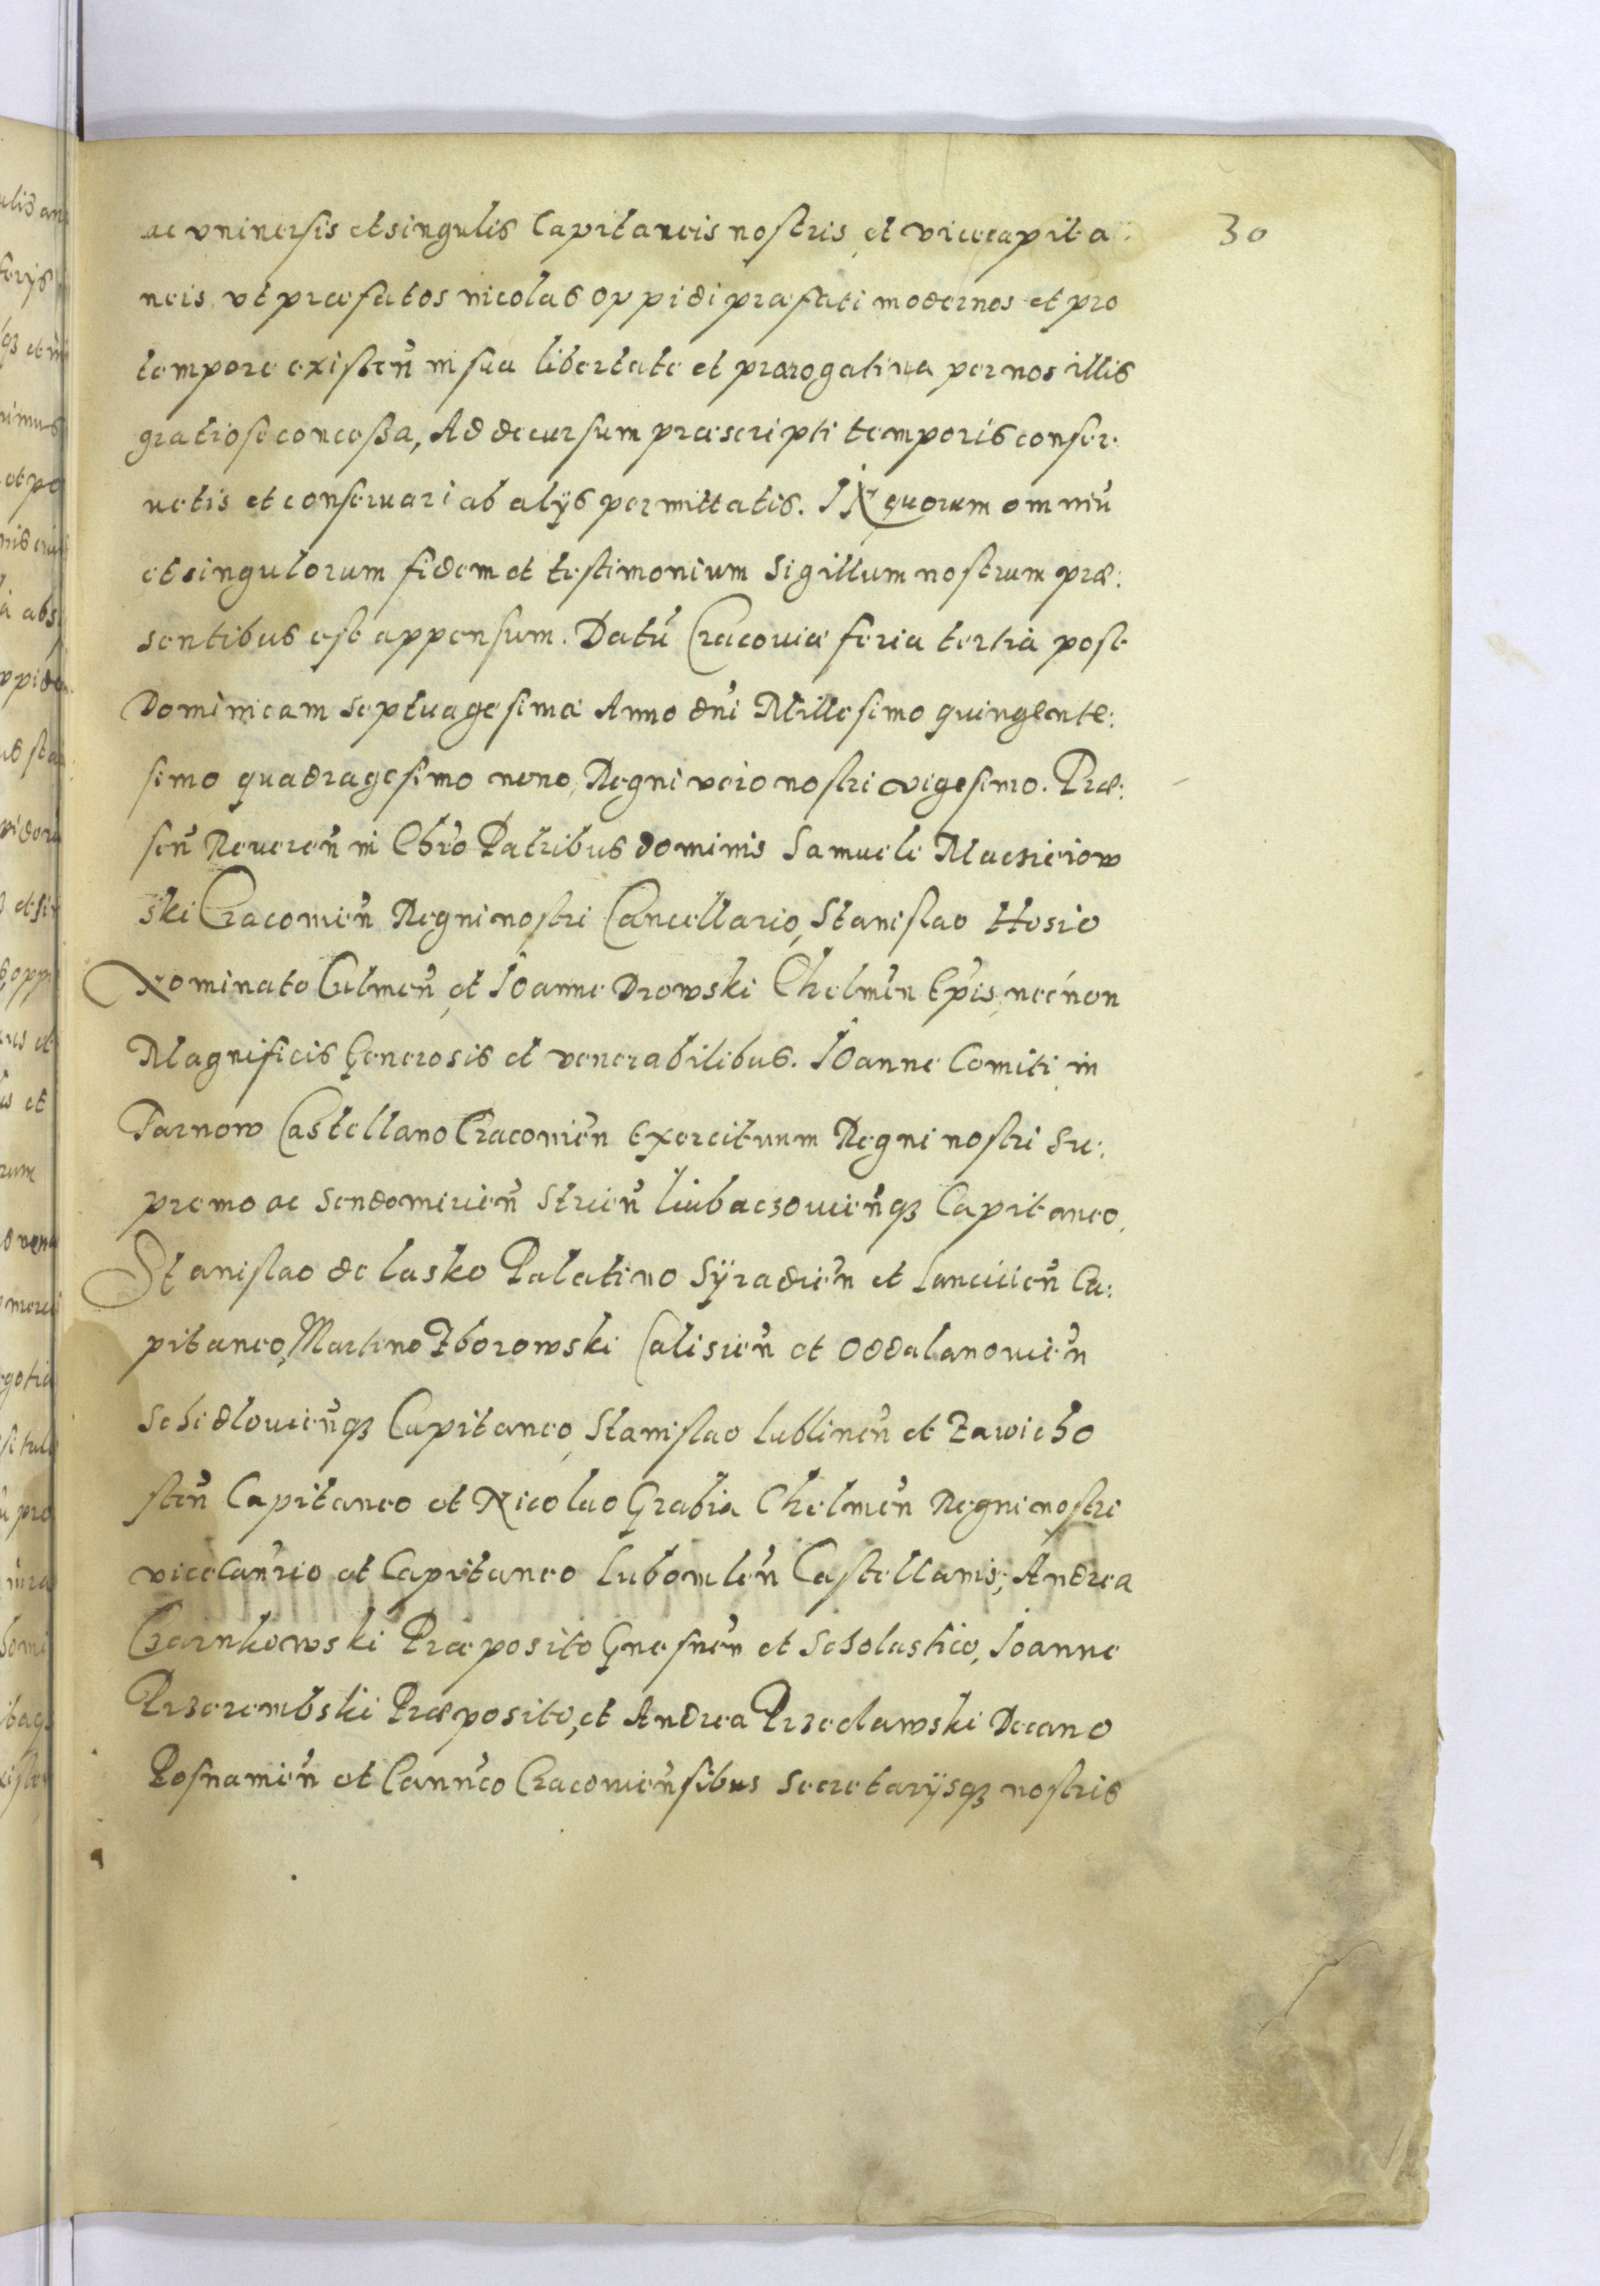 30
ac vniuersis et singulis Capitaneis nostris, et vicecapita:
neis, vt præfatos incolas oppidi præfati modernos et pro
tempore existeñ in sua libertate et prærogatiua per nos illis
gratiose concessa, Ad decursum præscripti temporis conser:
uetis et conseruari ab alÿs permittatis. IN quorum omniũ
et singulorum fidem et testimonium sigillum nostrum præ:
sentibus est appensum. Datũ Cracouiæ feria tertia post
Dominicam septuagesimæ Anno dñi Millesimo quingente:
simo quadragesimo nono, Regni vero nostri vigesimo. Præ:
señ Reuereñ in Chrõ Patribus dominis Samuele Maczieiow
ski Cracouieñ Regni nostri Cancellario, Stanislao Hosio
Nominato Culmeñ, et Ioanne Drowski Chelmeñ Epĩs, necnon
Magnificis Generosis et venerabilibus. Ioanne Comiti in
Tarnow Castellano Cracouieñ Exercituum Regni nostri su:
premo ac Sendomirieñ Strieñ liubaczouieñq3 Capitaneo,
Stanislao de lasko Palatino Sÿradieñ et Lanciicieñ Ca:
pitaneo, Martino Zborowski Calisieñ et Oddalanouieñ
Schidlouieñq3 Capitaneo, Stanislao lublineñ et Zawicho
steñ Capitaneo et Nicolao Grabia Chelmeñ Regni nostri
vicecañrio et Capitaneo lubomleñ Castellanis, Andrea
Czarnkowski Præposito Gnesneñ et Scholastico, Ioanne
Przerembski Præposito, et Andrea Przeclawski Decano
Posnamieñ et Canñco Cracouieñsibus Secretarÿsq3 nostris